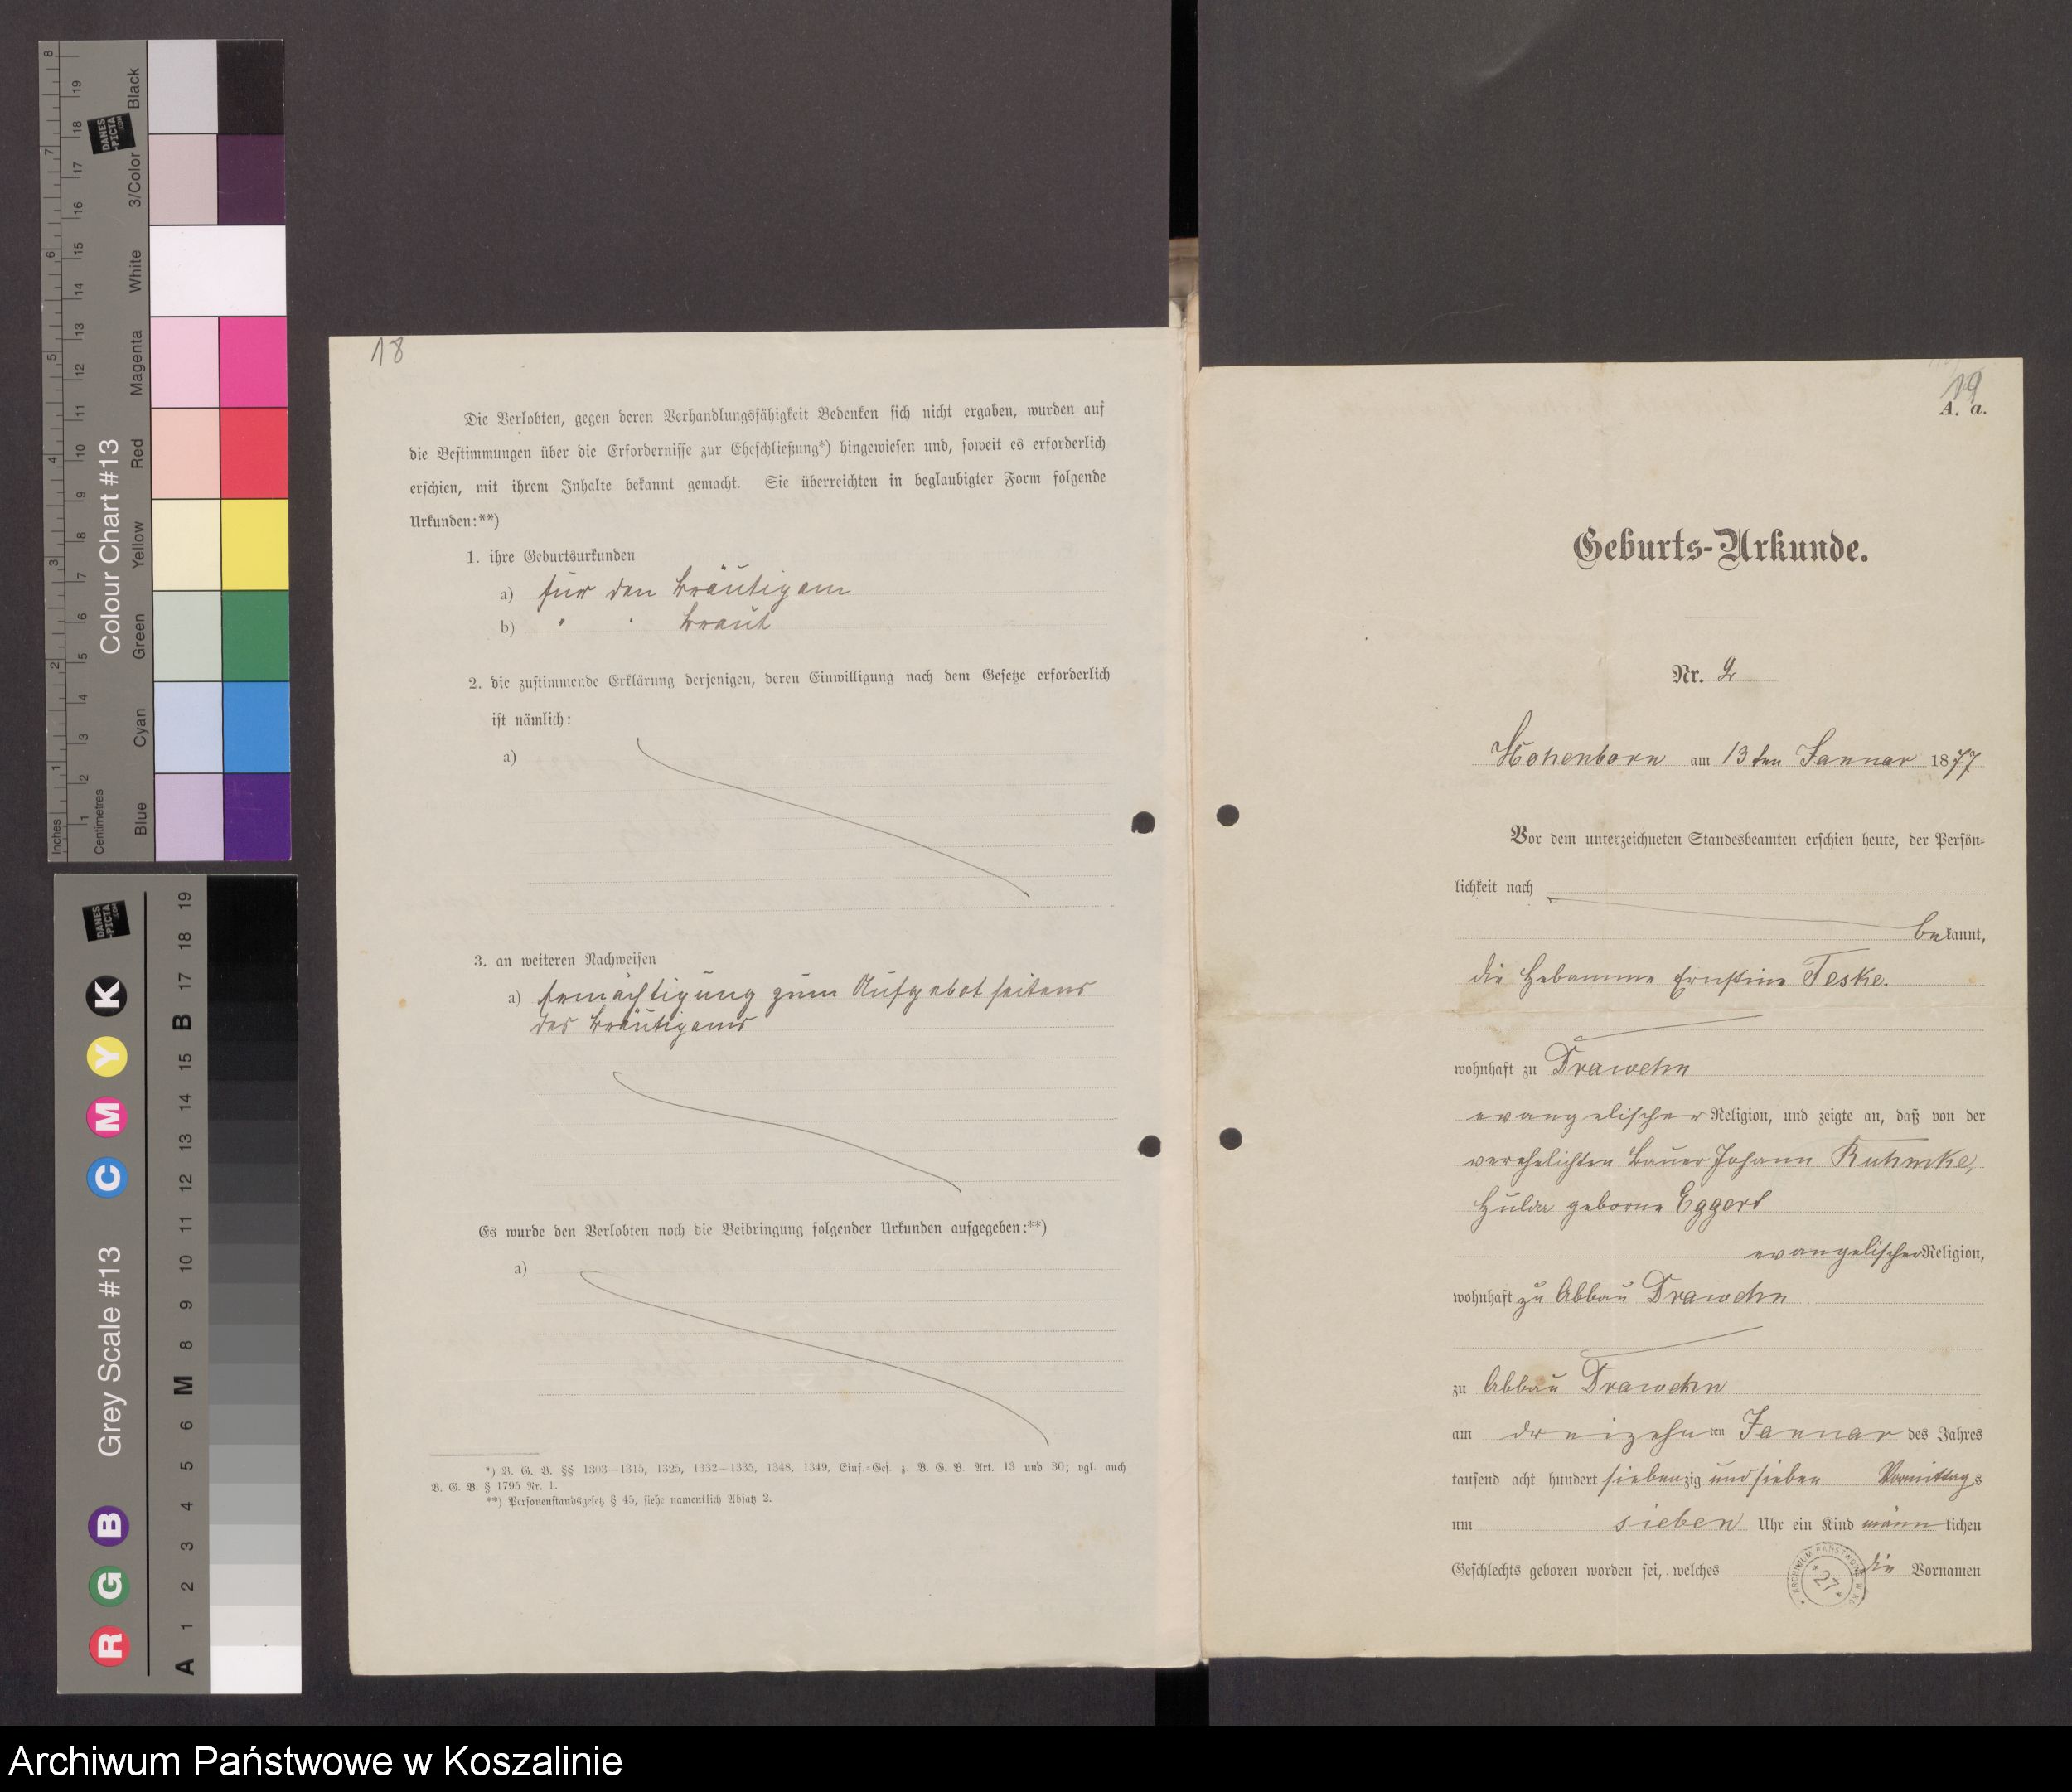 18
Die Verlobten, gegen deren Verhandlungsfähigkeit Bedenken sich nicht ergaben, wurden auf
die Bestimmungen über die Erfordernisse zur Eheschließung*) hingewiesen und, soweit es erforderlich
erschien, mit ihrem Inhalte bekannt gemacht. Sie überreichten in beglaubigter Form folgende
Urkunden:**)
1. ihre Geburtsurkunden
a) für den Bräutigam
b) " " Braut
2. die zustimmende Erklärung derjenigen, deren Einwilligung nach dem Gesetze erforderlich
ist nämlich:
a)
3. an weiteren Nachweisen
a) Ermächtigung zum Aufgebot seitens
des Bräutigams
Es wurde den Verlobten noch die Beibringung folgender Urkunden aufgegeben:**)
a)
*) B. G. B. §§ 1303—1315, 1325, 1332—1335, 1348, 1349, Einf.-Ges. z. B. G. B. Art. 13 und 30; vgl. auch
B. G. B. § 1795 Nr. 1.
**) Personenstandsgesetz § 45, siehe namentlich Absatz 2.
19
A. a.
Geburts-Urkunde.
Nr. 2
Hohenborn am 13ten Januar 1877
Vor dem unterzeichneten Standesbeamten erschien heute, der Persön-
lichkeit nach
bekannt,
die Hebamme Ernstine Teske.
wohnhaft zu Drawehn
evangelischer Religion, und zeigte an, daß von der
verehelichten Bauer Johann Ruhmke,
Hulda geborne Eggert
evangelischer Religion,
wohnhaft zu Abbau Drawehn
zu Abbau Drawehn
am dreizehnten Januar des Jahres
tausend acht hundert siebenzig und sieben Vormittags
um sieben Uhr ein Kind männlichen
Geschlechts geboren worden sei, welches die Vornamen
ARCHIWUM PAŃSTWOWE W KO
* 27 *
Colour Chart #13
Black
3/Color
White
Magenta
Red
Yellow
Green
Cyan
Blue
Inches
1 2 3 4 5 6 7 8
Centimetres
1 2 3 4 5 6 7 8 9 10 11 12 13 14 15 16 17 18 19
DANES
-PICTA
.COM
Grey Scale #13
R G B C M Y K
A 1 2 3 4 5 6 M 8 9 10 11 12 13 14 15 B 17 18 19
DANES
-PICTA
.COM
Archiwum Państwowe w Koszalinie